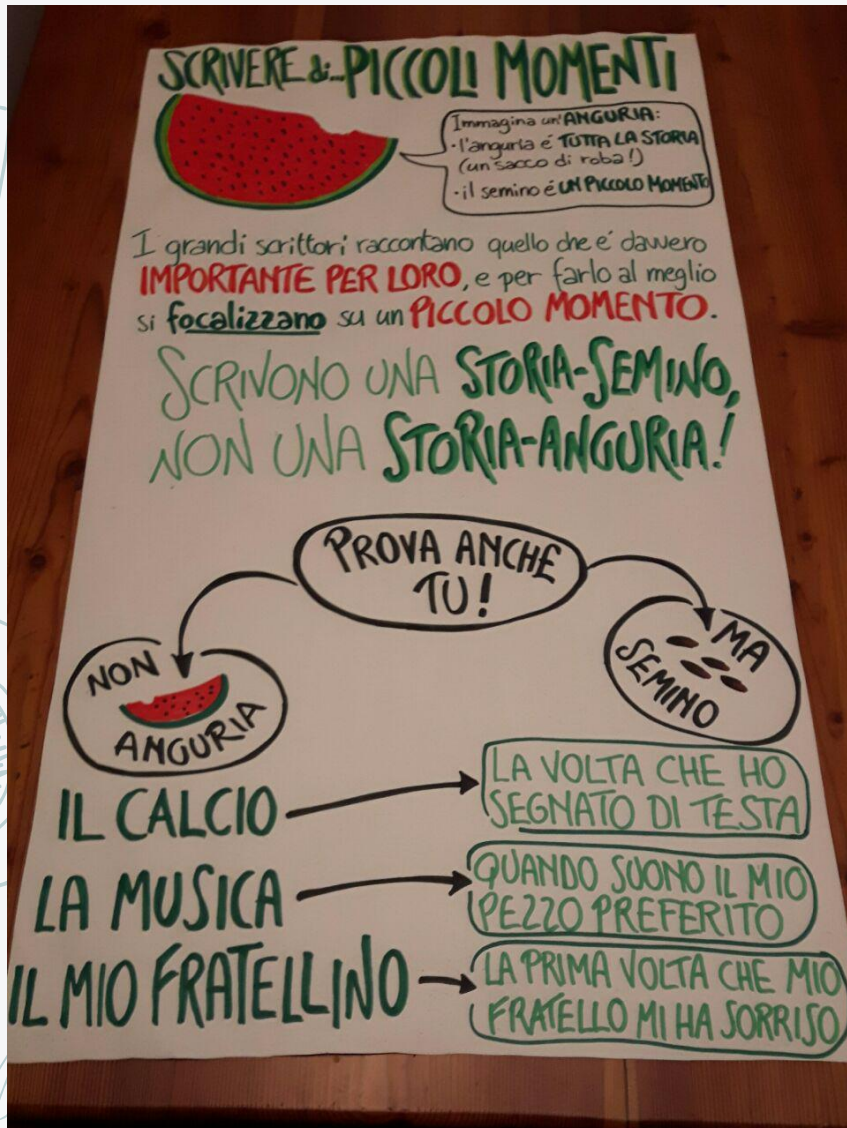 SCRIVERE di... PICCOLI MOMENTI
Immagina un'ANGURIA:
• l'anguria é TUTTA LA STORIA
(un sacco di roba!)
• il semino é UN PICCOLO MOMENTO
I grandi scrittori raccontano quello che e' davvero
IMPORTANTE PER LORO, e per farlo al meglio
si focalizzano su un PICCOLO MOMENTO.
SCRIVONO UNA STORIA-SEMINO,
NON UNA STORIA-ANGURIA!
PROVA ANCHE
TU!
NON
ANGURIA
MA
SEMINO
IL CALCIO
LA VOLTA CHE HO
SEGNATO DI TESTA
LA MUSICA
QUANDO SUONO IL MIO
PEZZO PREFERITO
IL MIO FRATELLINO
LA PRIMA VOLTA CHE MIO
FRATELLO MI HA SORRISO